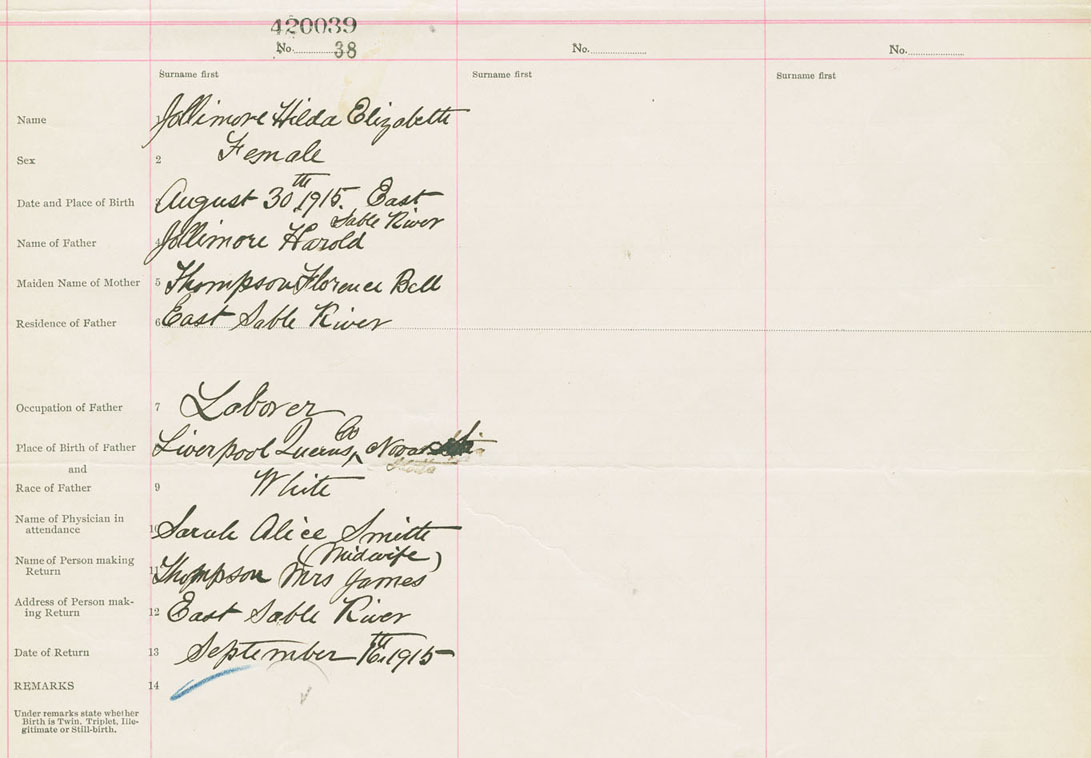 420039
No. 38
No.
No.
Surname first
Surname first
Surname first
Name Jollimore Hilda Elizabeth
Sex 2 Female
Date and Place of Birth 3 August 30th 1915. East
Sable River
Name of Father 4 Jollimore Harold
Maiden Name of Mother 5 Thompson Florence Bell
Residence of Father 6 East Sable River
Occupation of Father 7 Laborer
Place of Birth of Father Liverpool Queens Co Nova
Scotia
and
Race of Father 9 White
Name of Physician in
attendance 10 Sarah Alice Smith
(Midwife)
Name of Person making
Return 11 Thompson Mrs James
Address of Person mak-
ing Return 12 East Sable River
Date of Return 13 September 16th 1915
REMARKS 14
Under remarks state whether
Birth is Twin, Triplet, Ille-
gitimate or Still-birth.